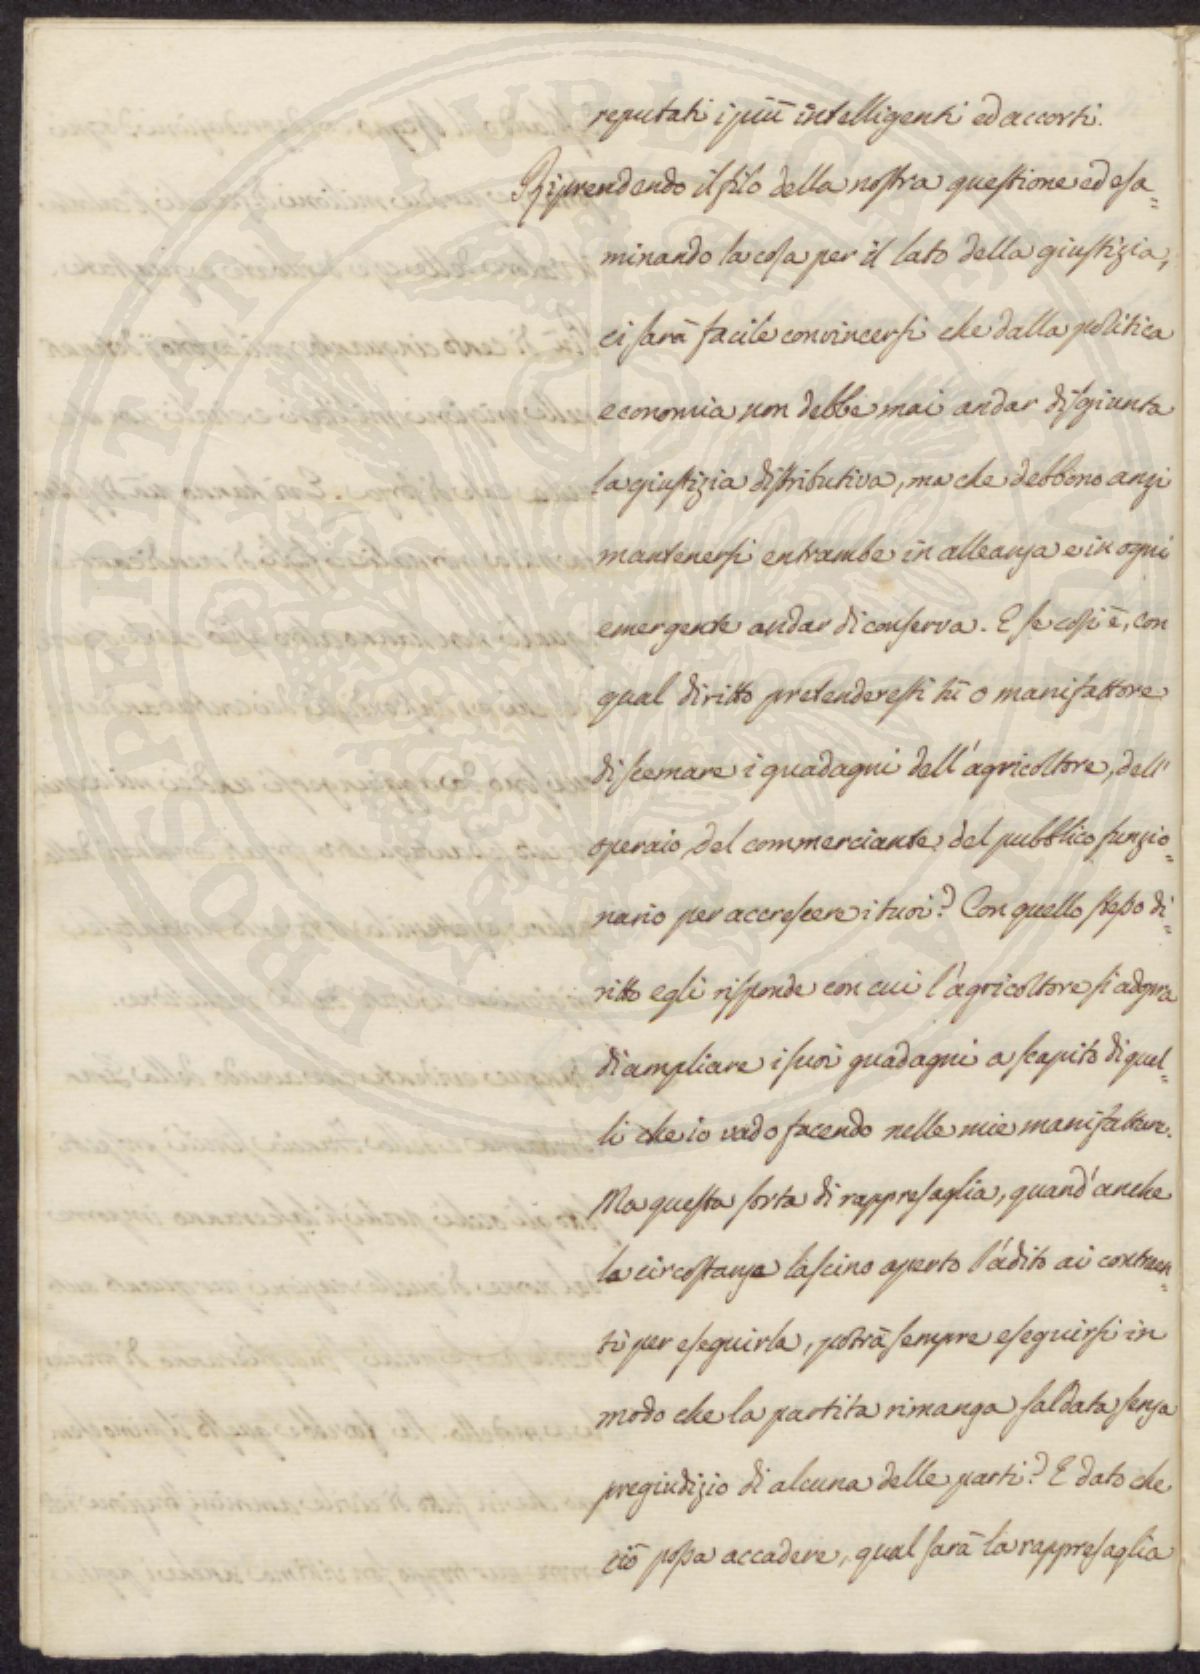 reputati i più intelligenti ed accorti.
Riprendendo il filo della nostra questione ed esa=
minando la cosa per il lato della giustizia,
ci sarà facile convincersi che dalla politica
economia non debbe mai andar disgiunta
la giustizia distributiva, ma che debbono anzi
mantenersi entrambe in alleanza e in ogni
emergente andar di conserva. E se così è, con
qual diritto pretenderesti tù o manifattore
di scemare i guadagni dell'agricoltore, dell'
operaio, del commerciante, del pubblico funzio=
nario per accrescere i tuoi? Con quello stesso di=
ritto egli risponde con cui l'agricoltore si adopra
di ampliare i suoi guadagni a scapito di quel=
li che io vado facendo nelle mie manifatture.
Ma questa sorta di rappresaglia, quand'anche
la circostanza lascino aperto l'àdito ai conten=
ti per eseguirla, potrà sempre eseguirsi in
modo che la partita rimanga saldata senza
pregiudizio di alcuna delle parti? E dato che
ciò possa accadere, qual sarà la rappresaglia
PROSPERITATI PUBLICAE AUGENDAE